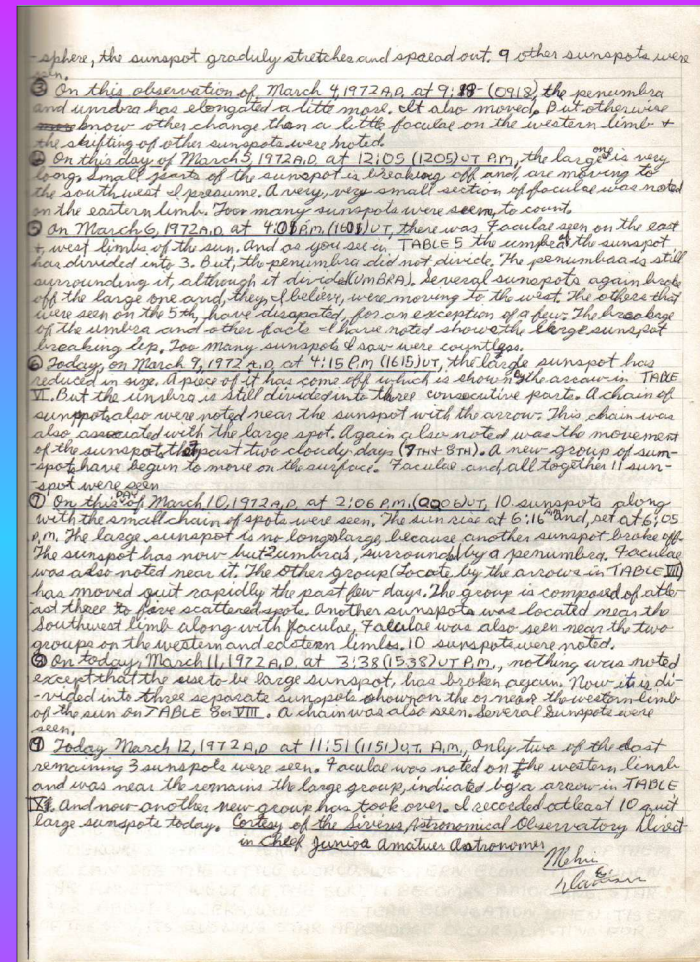 -sphere, the sunspot graduly stretches and spread out. 9 other sunspots were
seen.
③ On this observation of March 4, 1972 A.D. at 9:18 - (0918), the penumbra
and umdra has elongated a little more. It also moved. But otherwire
know other change than a little faculae on the western limb +
the shifting of other sunspots were noted.
On this day of March 5, 1972 A.D. at 12:05 (1205) UT P.M., the large one is very
long. Small parts of the sunspot is breaking off and, are moving to
the southwest I presume. A very, very small section of faculae was noted
on the eastern limb. Too many sunspots were seen, to count.
⑤ On March 6, 1972 A.D. at 4:01 P.M. (1601) UT, there was. Faculae seen on the east
+ west limbs of the sun. And as you see in TABLE 5 the the sunspot
has divided into 3. But, the penumbra did not divide. The penumbraa is still
surrounding it, although it divided (UMBRA). Several sunspots again broke
off the large one and, they, I believe, were moving to the west. The others that
were seen on the 5th, have disapated, for an exception of a few. The breakage
of the umbra and other facts I have noted shows the large sunspot
breaking up. Too many sunspots I saw were countless.
⑥ Today, on March 9, 1972 A.D. at 4:15 P.M (1615) UT, the large sunspot has
reduced in size. A piece of it has come off which is shown by the arrow in TABLE
VI. But the umbra is still divided into three consecutive parts. A chain of
sunspots also were noted near the sunspot with the arrow. This chain was
also associated with the large spot. Again also noted was the movement
of the sunspots the past two cloudy days (7TH + 8TH). A new group of sun-
-spots have begun to move on the surface. Faculae and all together 11 sun-
-spot were seen
⑦ On this DAY of March 10, 1972 A.D. at 2:06 P.M. (0206) UT, 10 sunspots along
with the small chain of spots were seen. The sun rise at 6:16 AM and, set at 6:05
P.M. The large sunspot is no longer large, because another sunspot broke off.
The sunspot has now but 2 umbras, surrounded by a penumbra. Faculae
was also noted near it. The other group (Locate by the arrows in TABLE VII)
has moved quit rapidly the past few days. The group is composed of atle-
ast three to five scattered spots. Another sunspots was located near the
Southwest limb along with faculae, Faculae was also seen near the two
groups on the western and eastern limbs. 10 sunspots were noted.
⑧ On today, March 11, 1972 A.D. at 3:38 (1538) UT P.M., nothing was noted
except that the use to be large sunspot, has broken again. Now it is di-
-vided into three separate sunspots shown on the or near the western limb
of the sun on TABLE 8 or VIII. A chain was also seen. Several sunspots were
seen.
⑨ Today March 12, 1972 A.D. at 11:51 (1151) U.T. A.M., only two of the last
remaining 3 sunspots were seen. Faculae was noted on the western limb
and was near the remains the large group, indicated by a arrow in TABLE
And now another new group has took over. I recorded atleast 10 quit
large sunspots today. Cortesy of the Sirius Astronomical Observatory Direct
in Cheif Junior Amatuer Astronomer